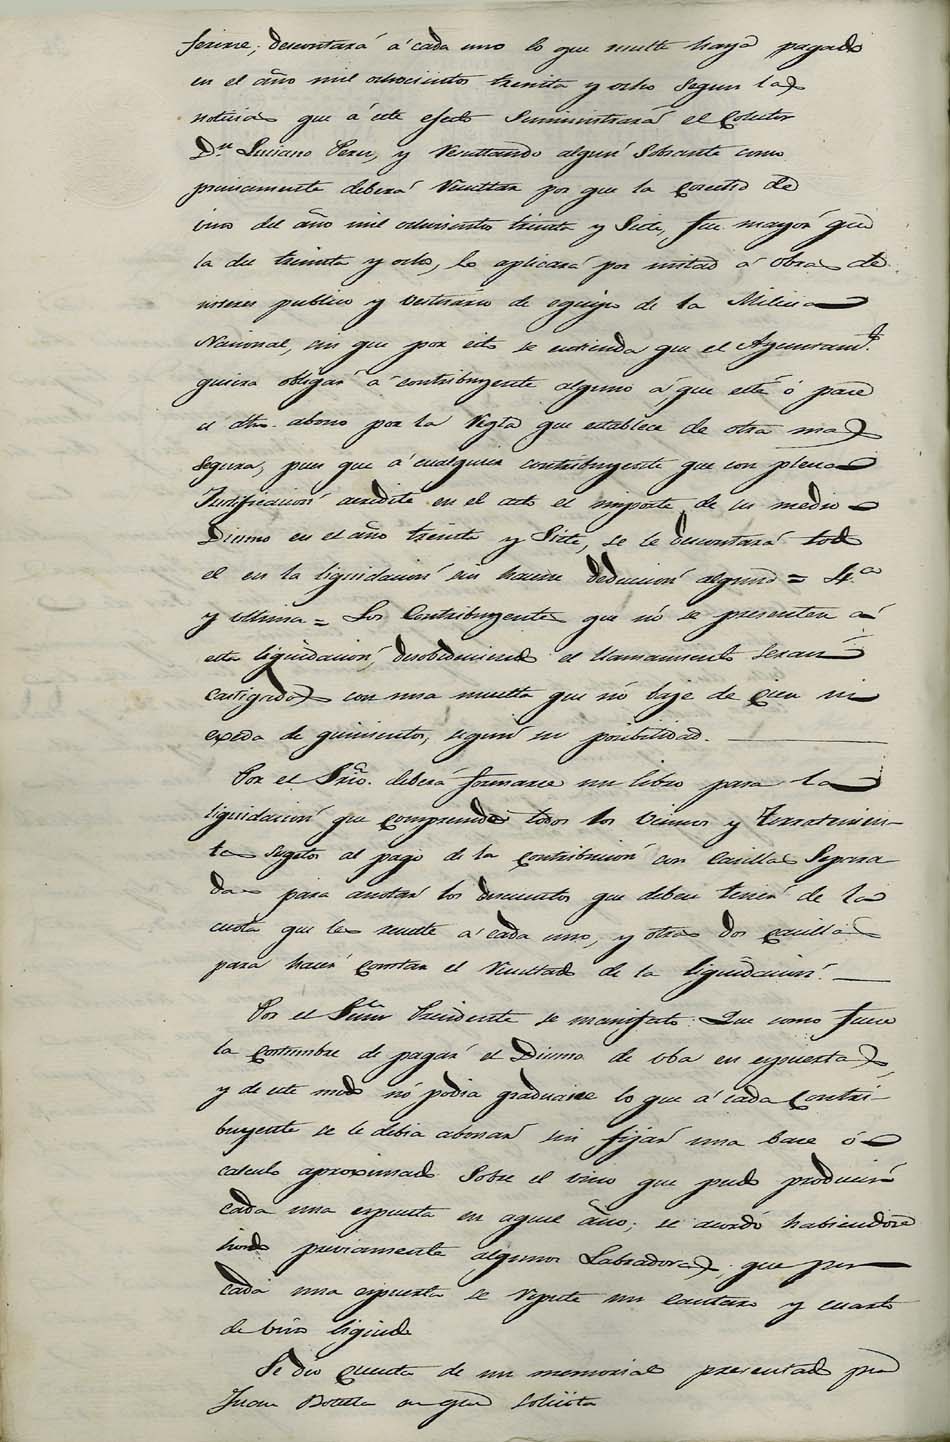 ferirse; descontará á cada uno lo que resulte haya pagado
en el año mil ochocientos treinta y ocho segun las
noticias que á este efecto suministrará el Colector
Dn. Luciano Perez, y resultando algun sobrante como
precisamente deberá resultar por que la cosecha de
vino del año mil ochocientos treinta y siete, fue mayor que
la del treinta y ocho, lo aplicará por mitad á obras de
interes publico y vestuario de equipo de la Milicia
Nacional, sin que por esto se entienda que el Ayuntamto.
quiera obligar á contribuyente alguno á que esté ó pase
el dho. abono por la regla que establece de otra mas
segura, pues que á cualquier contribuyente que con plena
Justificacion acredite en el acto el importe de su medio
Diezmo en el año treinta y siete, se le descontará todo
el en la liquidacion sin hacer deducion alguna = 4.a
y ultima = Los Contribuyentes que no se presenten á
esta liquidacion, desobedeciendo el llamamiento serán
castigados con una multa que no baje de cien ni
exceda de quinientos, segun su posibilidad.
Por el Srio. deberá formarse un libro para la
liquidacion que comprenda todos los vecinos y terratenien-
tes sugetos al pago de la contribucion con casillas separa
das para anotar los descuentos que deben tener de la
cuota que les resulte á cada uno, y otras dos casillas
para hacer constar el resultado de la liquidacion.
Por el Señor Presidente se manifesto: Que como fuese
la costumbre de pagar el Diezmo de uba en espuertas,
y de este modo no podia graduarse lo que á cada Contri-
buyente se le debia abonar sin fijar una base ó
calculo aproximado sobre el vino que pudo producir
cada una espuerta en aquel año; se acordó habiendose
hoido previamente algunos Labradores, que por
cada una espuerta se repute un cantaro y cuarto
de vino liquido
Se dio cuenta de un memorial presentado por
Juan Botella en que solicita